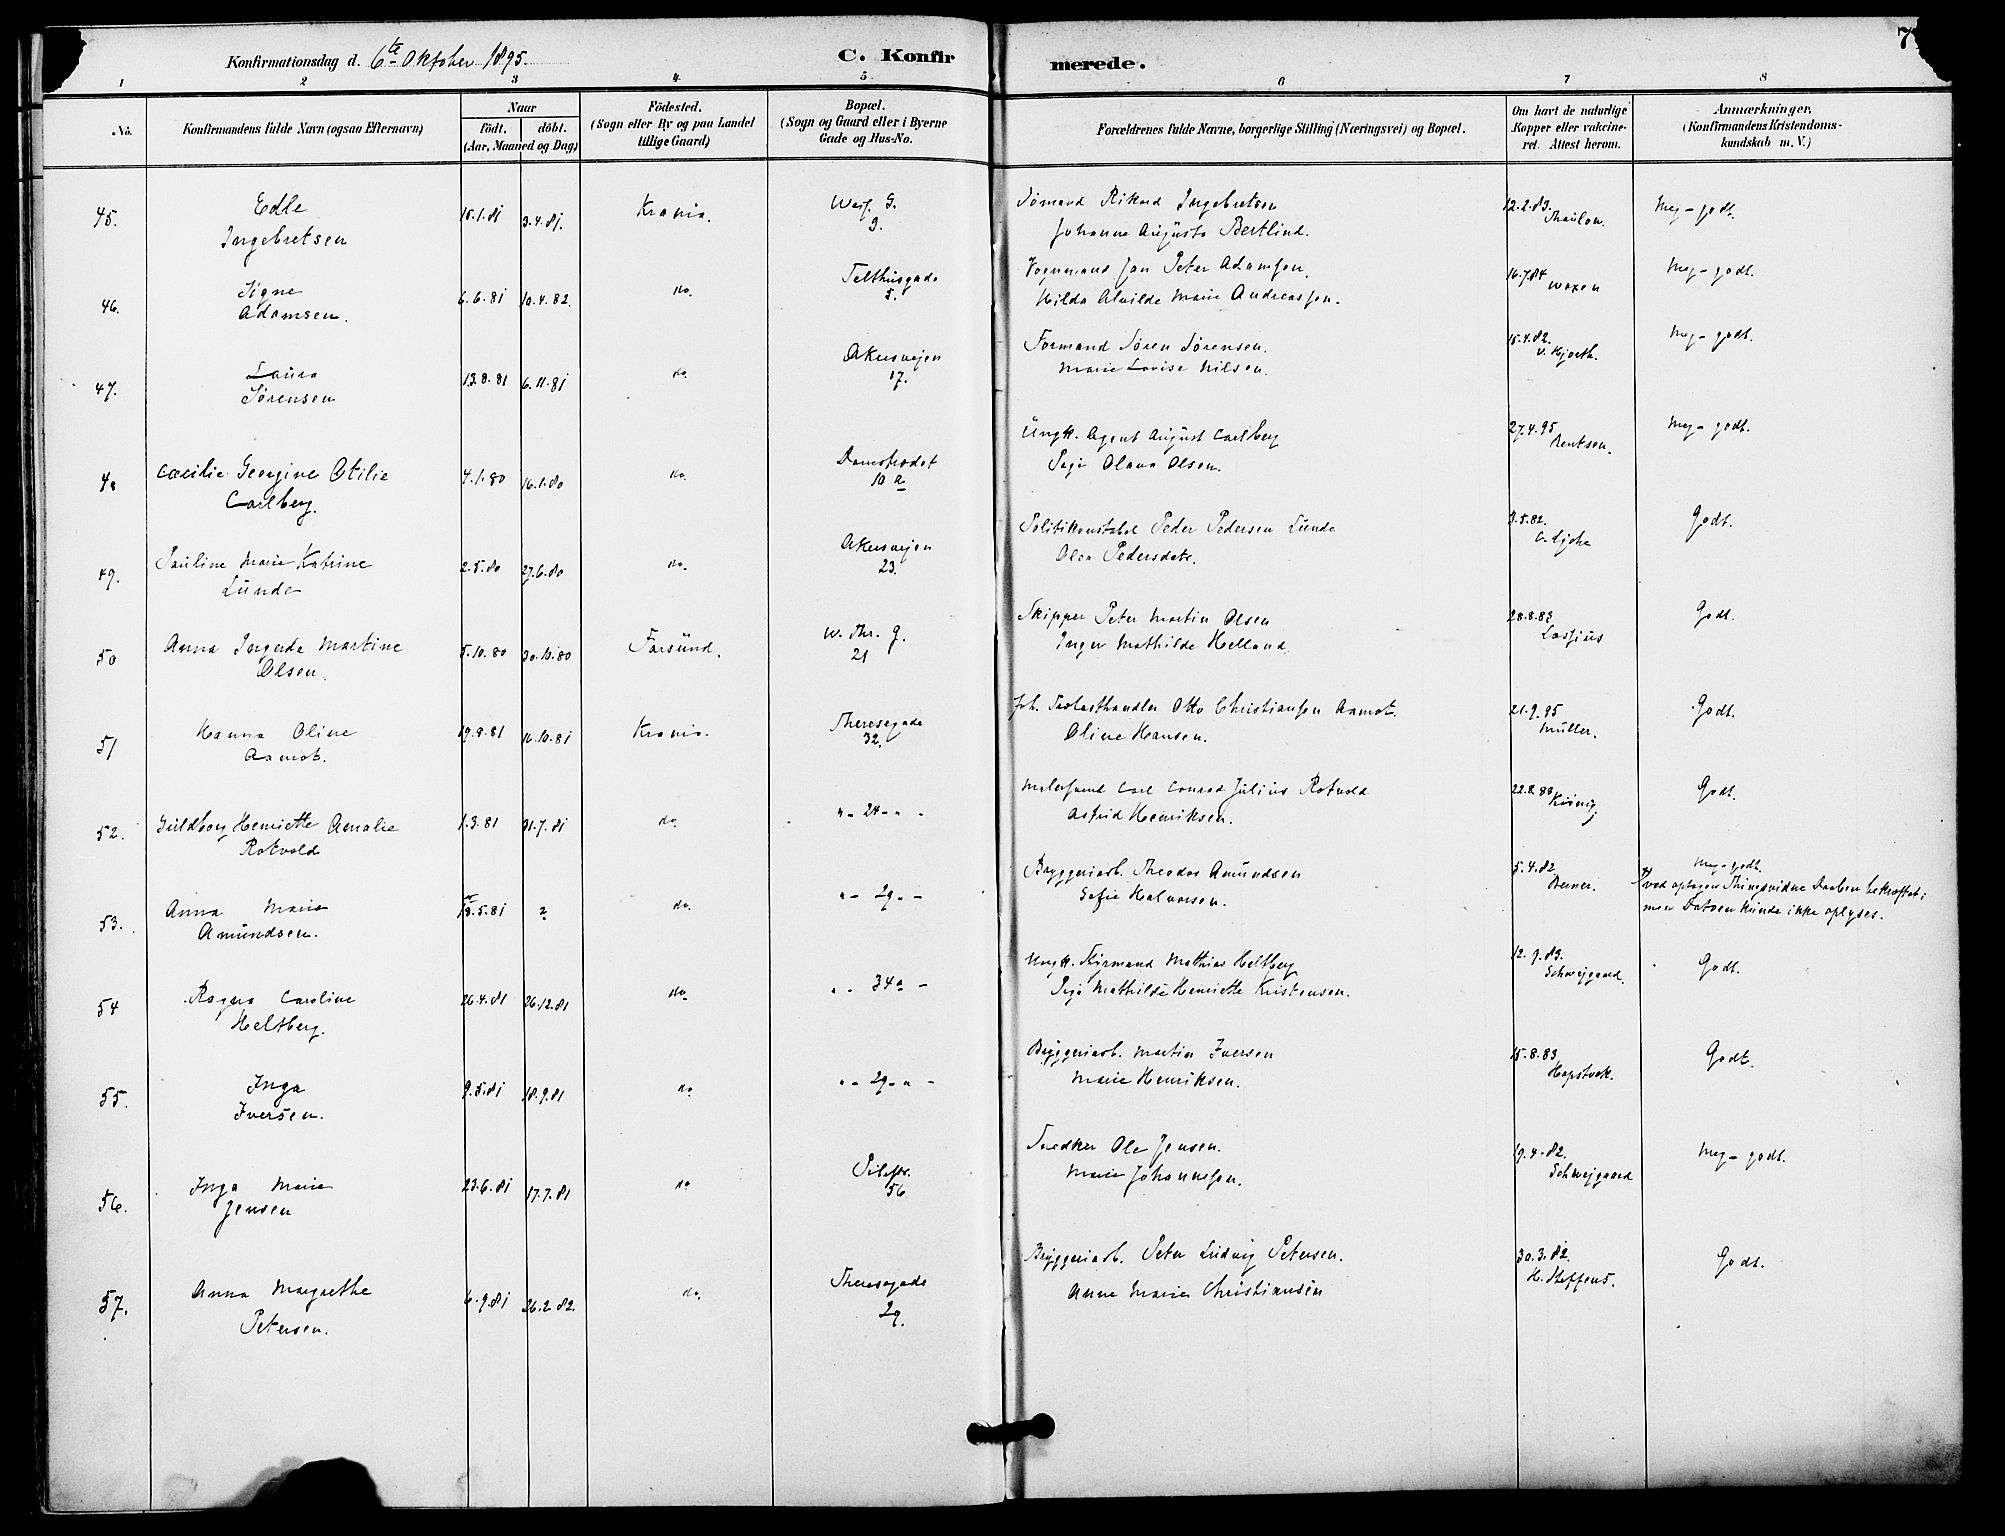 7
Konfirmationsdag d. 6te Oktober 1895.
C. Konfirmerede.
1 2 3 4 5 6 7 8
No.
Konfirmandens fulde Navn (ogsaa Efternavn)
Naar
födt. döbt.
(Aar, Maaned og Dag)
Födested.
(Sogn eller By og paa Landet
tillige Gaard)
Bopæl.
(Sogn og Gaard eller i Byerne
Gade og Hus-No.
Forældrenes fulde Navne, borgerlige Stilling (Næringsvei) og Bopæl.
Om havt de naturlige
Kopper eller vakcine-
ret. Attest herom.
Anmærkninger.
(Konfirmandens Kristendoms-
kundskab m. V.)
45. Edle 15.1.81 3.4.81. Krania. G. Sømand Rikard Ingebretsen 12.2.83. Meg-godt.
Ingebretsen 9. Johanne Augusta Bertlind. Thaulow.
46. Signe 6.6.81 10.4.82. do. Telthusgade Vognmand Jan Peter Adamsen. 16.7.84 Meg-godt.
Adamsen. 5. Hilda Alvilde Marie Andreassen.
47. Laura 13.8.81 6.11.81 do. Akersvejen Formand Søren Sørensen. 15.4.82. Meg-godt.
Sørensen 17. Marie Lovise Nilsen. Hjorth.
48 Cæcilie Georgine Otilie 4.1.80 16.1.80 do. Damstrædet Ungk. Agent August Carlberg 27.4.95 Meg-godt.
Carlberg. 10 a Pige Olava Olsen. Bentsen.
49. Pauline Marie Katrine 2.5.80 27.6.80 do. Akersvejen Politikonstabel Peder Pedersen Lunde 3.5.82. Godt.
Lunde 23. Olea Pedersdatr.
50 Anna Ingerda Martine 5.10.80 30.10.80 Farsund. W. Thr. G. Skipper Peter Martin Olsen 28.8.83 Godt.
Olsen. 21 Inger Mathilde Helland. Lassius
51 Hanna Oline 19.8.81 16.10.81 Krania. Theresegade Otto Christiansen Aamot. 21.9.95 Godt.
Aamot. 32. Oline Hansen. Müller.
52. Guldborg Henriette Amalie 1.3.81 31.7.81 do. " - 24 - " - Malersvend Carl Conrad Julius Rotvold 22.8.88 Godt.
Rotvold Astrid Henriksen.
53. Anna Marie 18.5.81 ? do. " - 29 - - Bryggeriarb. Theodor Amundsen 5.4.82 Meg-godt.
Amundsen. Sofie Halvorsen. Berner. ved optagen Thingsvidne Daaben bekræftet;
men Datoen kunde ikke oplyses.
54 Ragna Caroline 26.4.81 26.12.81 do " - 34a - Ungk. Styrmand Mathias Heltberg 12.9.83. Godt.
Heltberg. Pige Mathilde Henriette Kristensen. Schweigaard.
55. Inga 9.5.81 18.9.81 do " - 29 - " - Bryggeriarb. Martin Iversen 15.8.83 Godt.
Iversen. Marie Henriksen.
56. Inga Marie 23.6.81 17.7.81 do Pilestr. Snedker Ole Jensen. 19.4.82. Meg-godt.
Jensen 56 Marie Johannessen. Schweigaard
57. Anna Margrethe 6.9.81 26.2.82. do. Theresegade Bryggeriarb. Peter Ludvig Petersen. 30.3.82. Godt.
Petersen. 29. Anne Marie Christiansen H. Steffens.